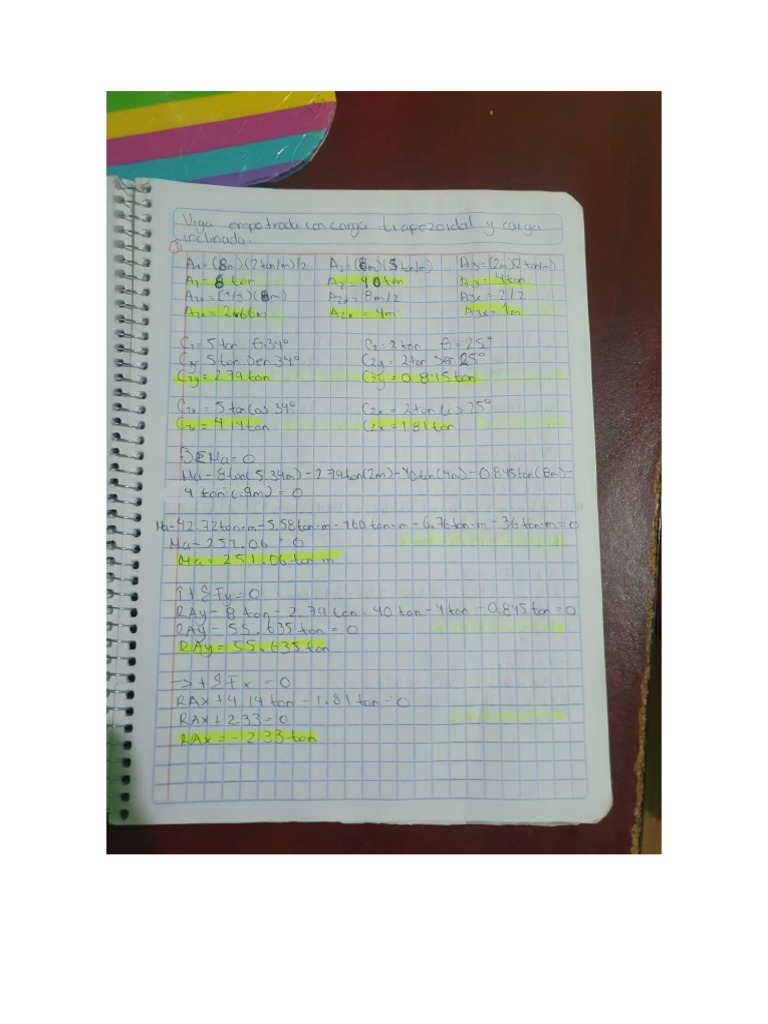 Viga empotrada con carga trapezoidal y carga
inclinada.
A1=(8m)(2ton/m)/2 A2=(8m)(5ton/m) A3=(2m)(2ton/m)
A1=8ton A2=40ton A3=4ton
A1x=(1/3)(8m) A2x=8m/2 A3x=2/2
A1x=2.66m A2x=4m A3x=1m
C1=5ton θ34° C2=2ton θ=25°
C1y 5ton Sen 34° C2y=2ton Sen 25°
C1y=2.79ton C2y=0.845ton
C1x=5tonCos 34° C2x=2tonCos 25°
C1x=4.14ton C2x=1.81ton
ΣMa=0
Ma-8ton(5.34m)-2.79ton(2m)-40ton(4m)-0.845ton(8m)-
4 ton(.9m)=0
Ma-42.72ton·m-5.58ton·m-160ton·m-6.76ton·m-36ton·m=0
Ma-251.06=0
Ma=251.06ton·m
↑+ΣFy=0
RAy-8ton-2.79ton-40ton-4ton-0.845ton=0
RAy-55.635ton=0
RAy=55.635ton
→+ΣFx=0
RAx+4.14ton-1.81ton=0
RAx+2.33=0
RAx=-2.33ton